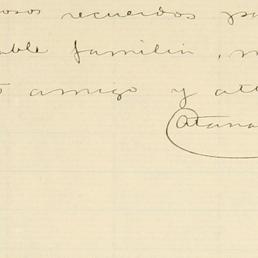 osos recuerdos pa
able familia, m
amigo y att
Atana